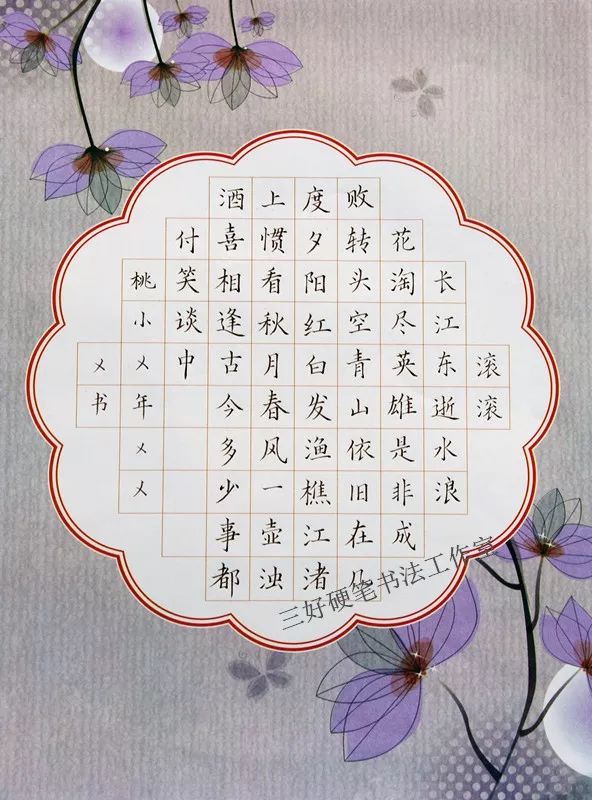 滚滚
长江东逝水浪
花淘尽英雄是非成
败转头空青山依旧在几
度夕阳红白发渔樵江渚
上惯看秋月春风一壶浊
酒喜相逢古今多少事都
付笑谈中
桃小乂年乂乂
乂书
三好硬笔书法工作室